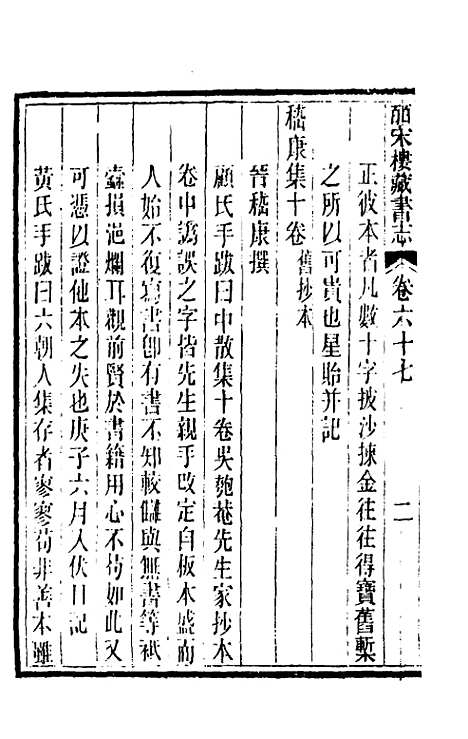 皕宋樓藏書志 卷六十七 二
正彼本者凡數十字披沙揀金往往得寶舊槧
之所以可貴也星貽并記
嵇康集十卷 舊抄本
晉嵇康撰
顧氏手跋曰中散集十卷吳匏菴先生家抄本
卷中譌誤之字皆先生親手改定自板本盛而
人始不復寫書卽有書不知較讎與無書等祇
蠹損浥爛耳觀前賢於書籍用心不苟如此又
可憑以證他本之失也庚子六月入伏日記
黃氏手跋曰六朝人集存者寥寥苟非善本雖